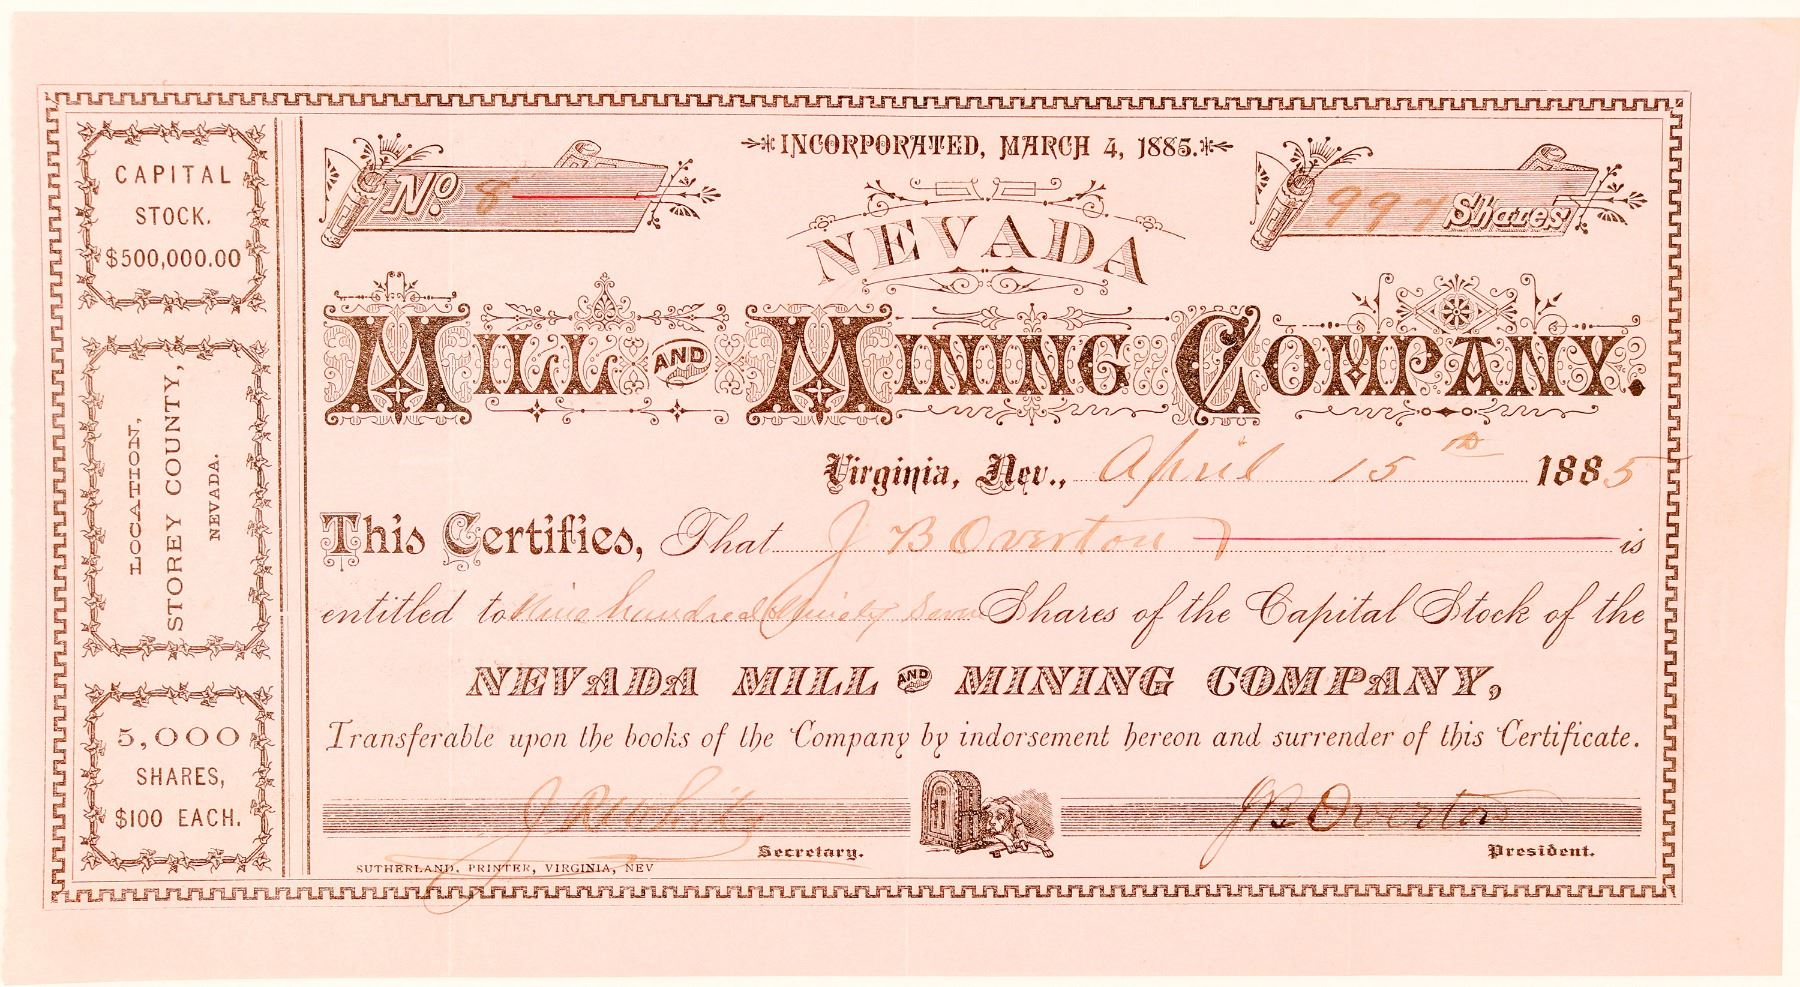 CAPITAL
STOCK.
$500,000.00
LOCATION,
STOREY COUNTY,
NEVADA.
5,000
SHARES,
$100 EACH.
INCORPORATED, MARCH 4, 1885.
No. 8
997 Shares
NEVADA
MILL AND MINING COMPANY.
Virginia, Nev., April 15th 1885
This Certifies, That J B Overton is
entitled to Nine hundred Ninety Seven Shares of the Capital Stock of the
NEVADA MILL AND MINING COMPANY,
Transferable upon the books of the Company by indorsement hereon and surrender of this Certificate.
J B Overton
Secretary.
President.
SUTHERLAND, PRINTER, VIRGINIA, NEV